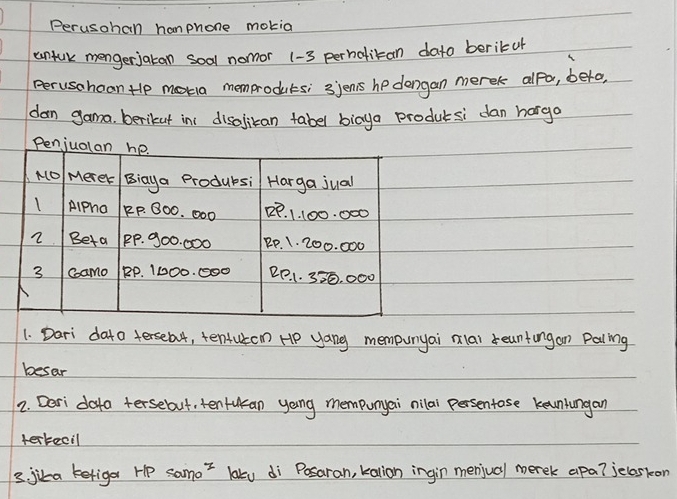 Perusahan hanphone mokia
untuk mengerjakan soal nomor 1-3 perhatikan data berikut
Perusahaan HP mokia memproduksi 3 jenis hp dengan merek alfa, beta,
dan gama. berikut ini disajikan tabel biaya produksi dan harga
Penjualan hp.
NO Merek Biaya Produksi Harga jual
1 Alpha RP. 800.000 RP. 1.100.000
2 Beta RP. 900.000 RP. 1.200.000
3 Gama RP. 1000.000 RP. 1.350.000
1. Dari data tersebut, tentukan HP yang mempunyai nilai keuntungan Paling
besar
2. Dari data tersebut, tentukan yang mempunyai nilai Persentase keuntungan
terkecil
3. jika ketiga HP sama² laku di Pasaran, kalian ingin menjual merek apa? jelaskan